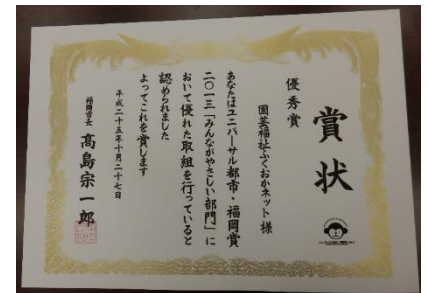 賞状
優秀賞
園芸福祉ふくおかネット 様
あなたはユニバーサル都市・福岡賞
二〇一三「みんながやさしい部門」に
おいて優れた取組を行っていると
認められました
よってこれを賞します
平成二十五年十月二十七日
福岡市長 高島宗一郎